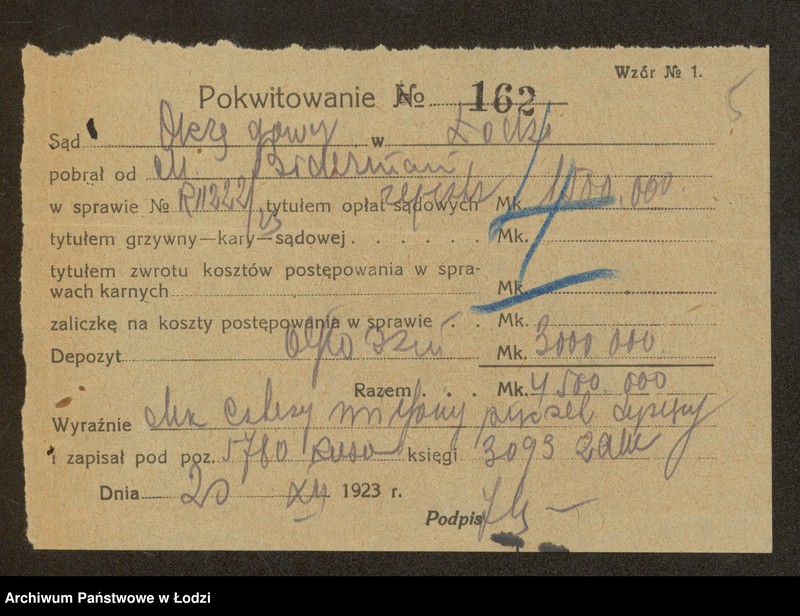 Wzór № 1.
5
Pokwitowanie № 162
Sąd Okręgowy w Łodzi
pobrał od M. Biderman
w sprawie № R 11222/23 tytułem opłat sądowych Mk. 1500.000
tytułem grzywny—kary—sądowej . . . . . . Mk.
tytułem zwrotu kosztów postępowania w spra-
wach karnych Mk.
zaliczkę na koszty postępowania w sprawie . . Mk.
Depozyt ogłoszeń Mk. 3000 000
Razem . . . Mk. 4 500. 000
Wyraźnie Mk cztery miljony pięćset tysięcy
i zapisał pod poz. 5780 księgi 3093
Dnia 20 XII 1923 r.
Podpis
Archiwum Państwowe w Łodzi